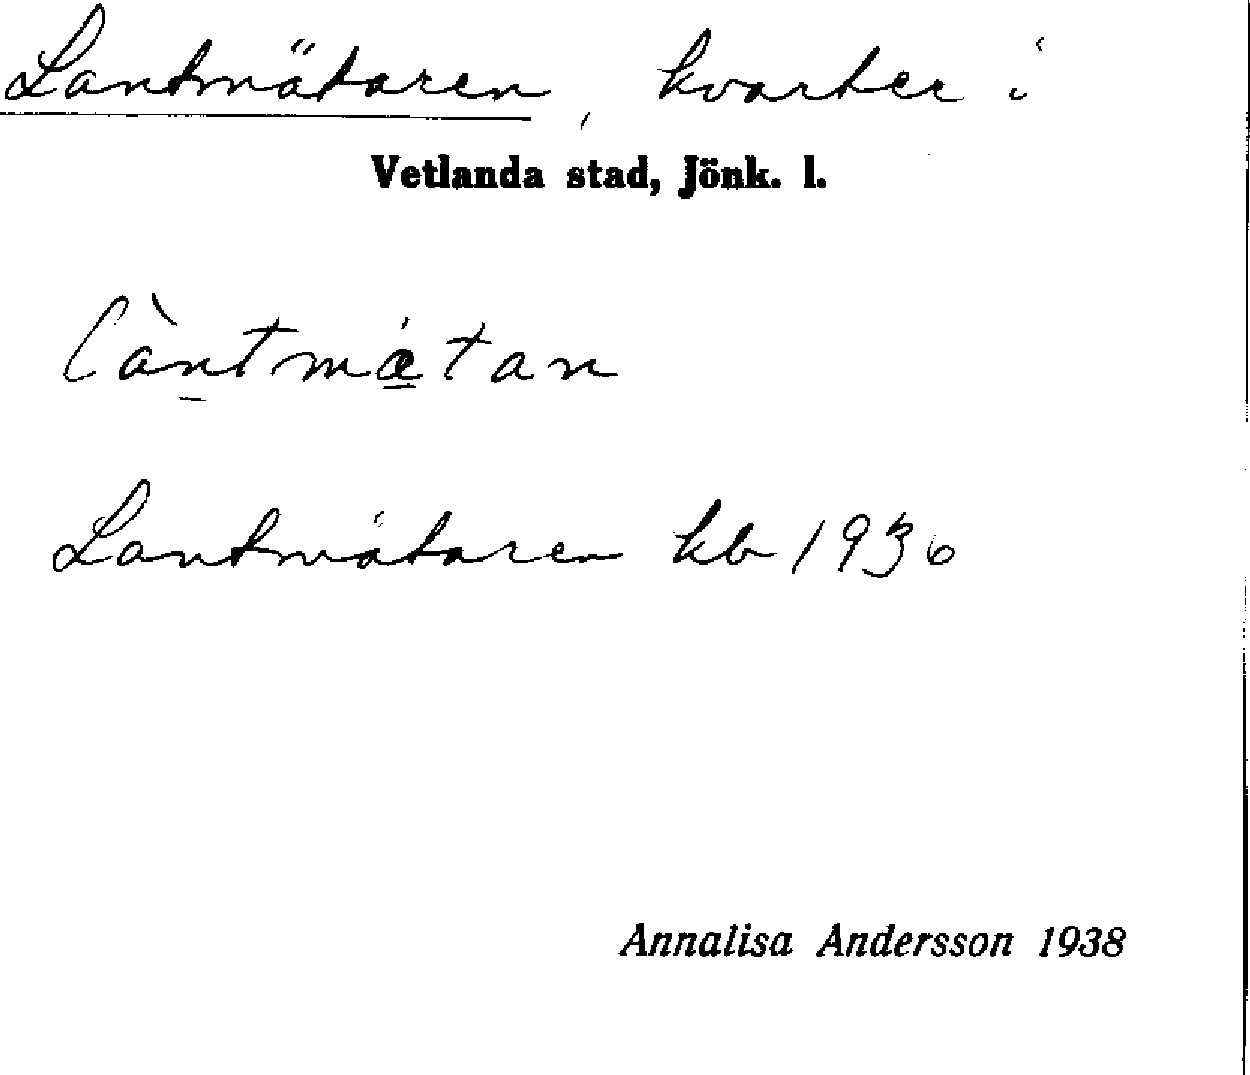 Lantmätaren, kvarter i
Vetlanda stad, Jönk. l.
làn̲tmǽ̲tan
Lantmätaren kb 1936
Annalisa Andersson 1938